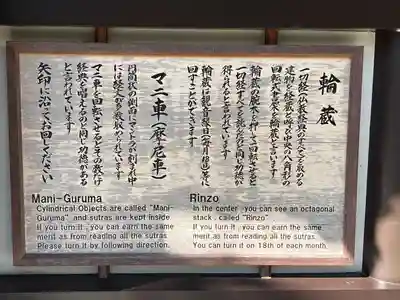 輪蔵
一切経(仏教経典のすべて)を収める
建物を経蔵と呼び中央の八角形の
回転式書架を輪蔵と言います
輪蔵の腕木を押して回転させると
一切経すべてを読んだと同じ功徳が
得られるとされています
輪蔵は観音縁日(毎月18日)等に
回すことができます
マニ車(摩尼車)
円筒状の側面にマントラが刻まれ中
には経文が多数収められています
マニ車を回転させるとその数だけ
経典を唱えるのと同じ功徳がある
と言われています
矢印に沿ってお回しください
Mani-Guruma
Cylindrical Objects are called "Mani-
Guruma" and sutras are kept inside
If you turn it, you can earn the same
merit as from reading all the sutras.
Please turn it by following direction.
Rinzo
In the center, you can see an octagonal
stack, called "Rinzo"
If you turn it, you can earn the same
merit as from reading all the sutras
You can turn it on 18th of each month.